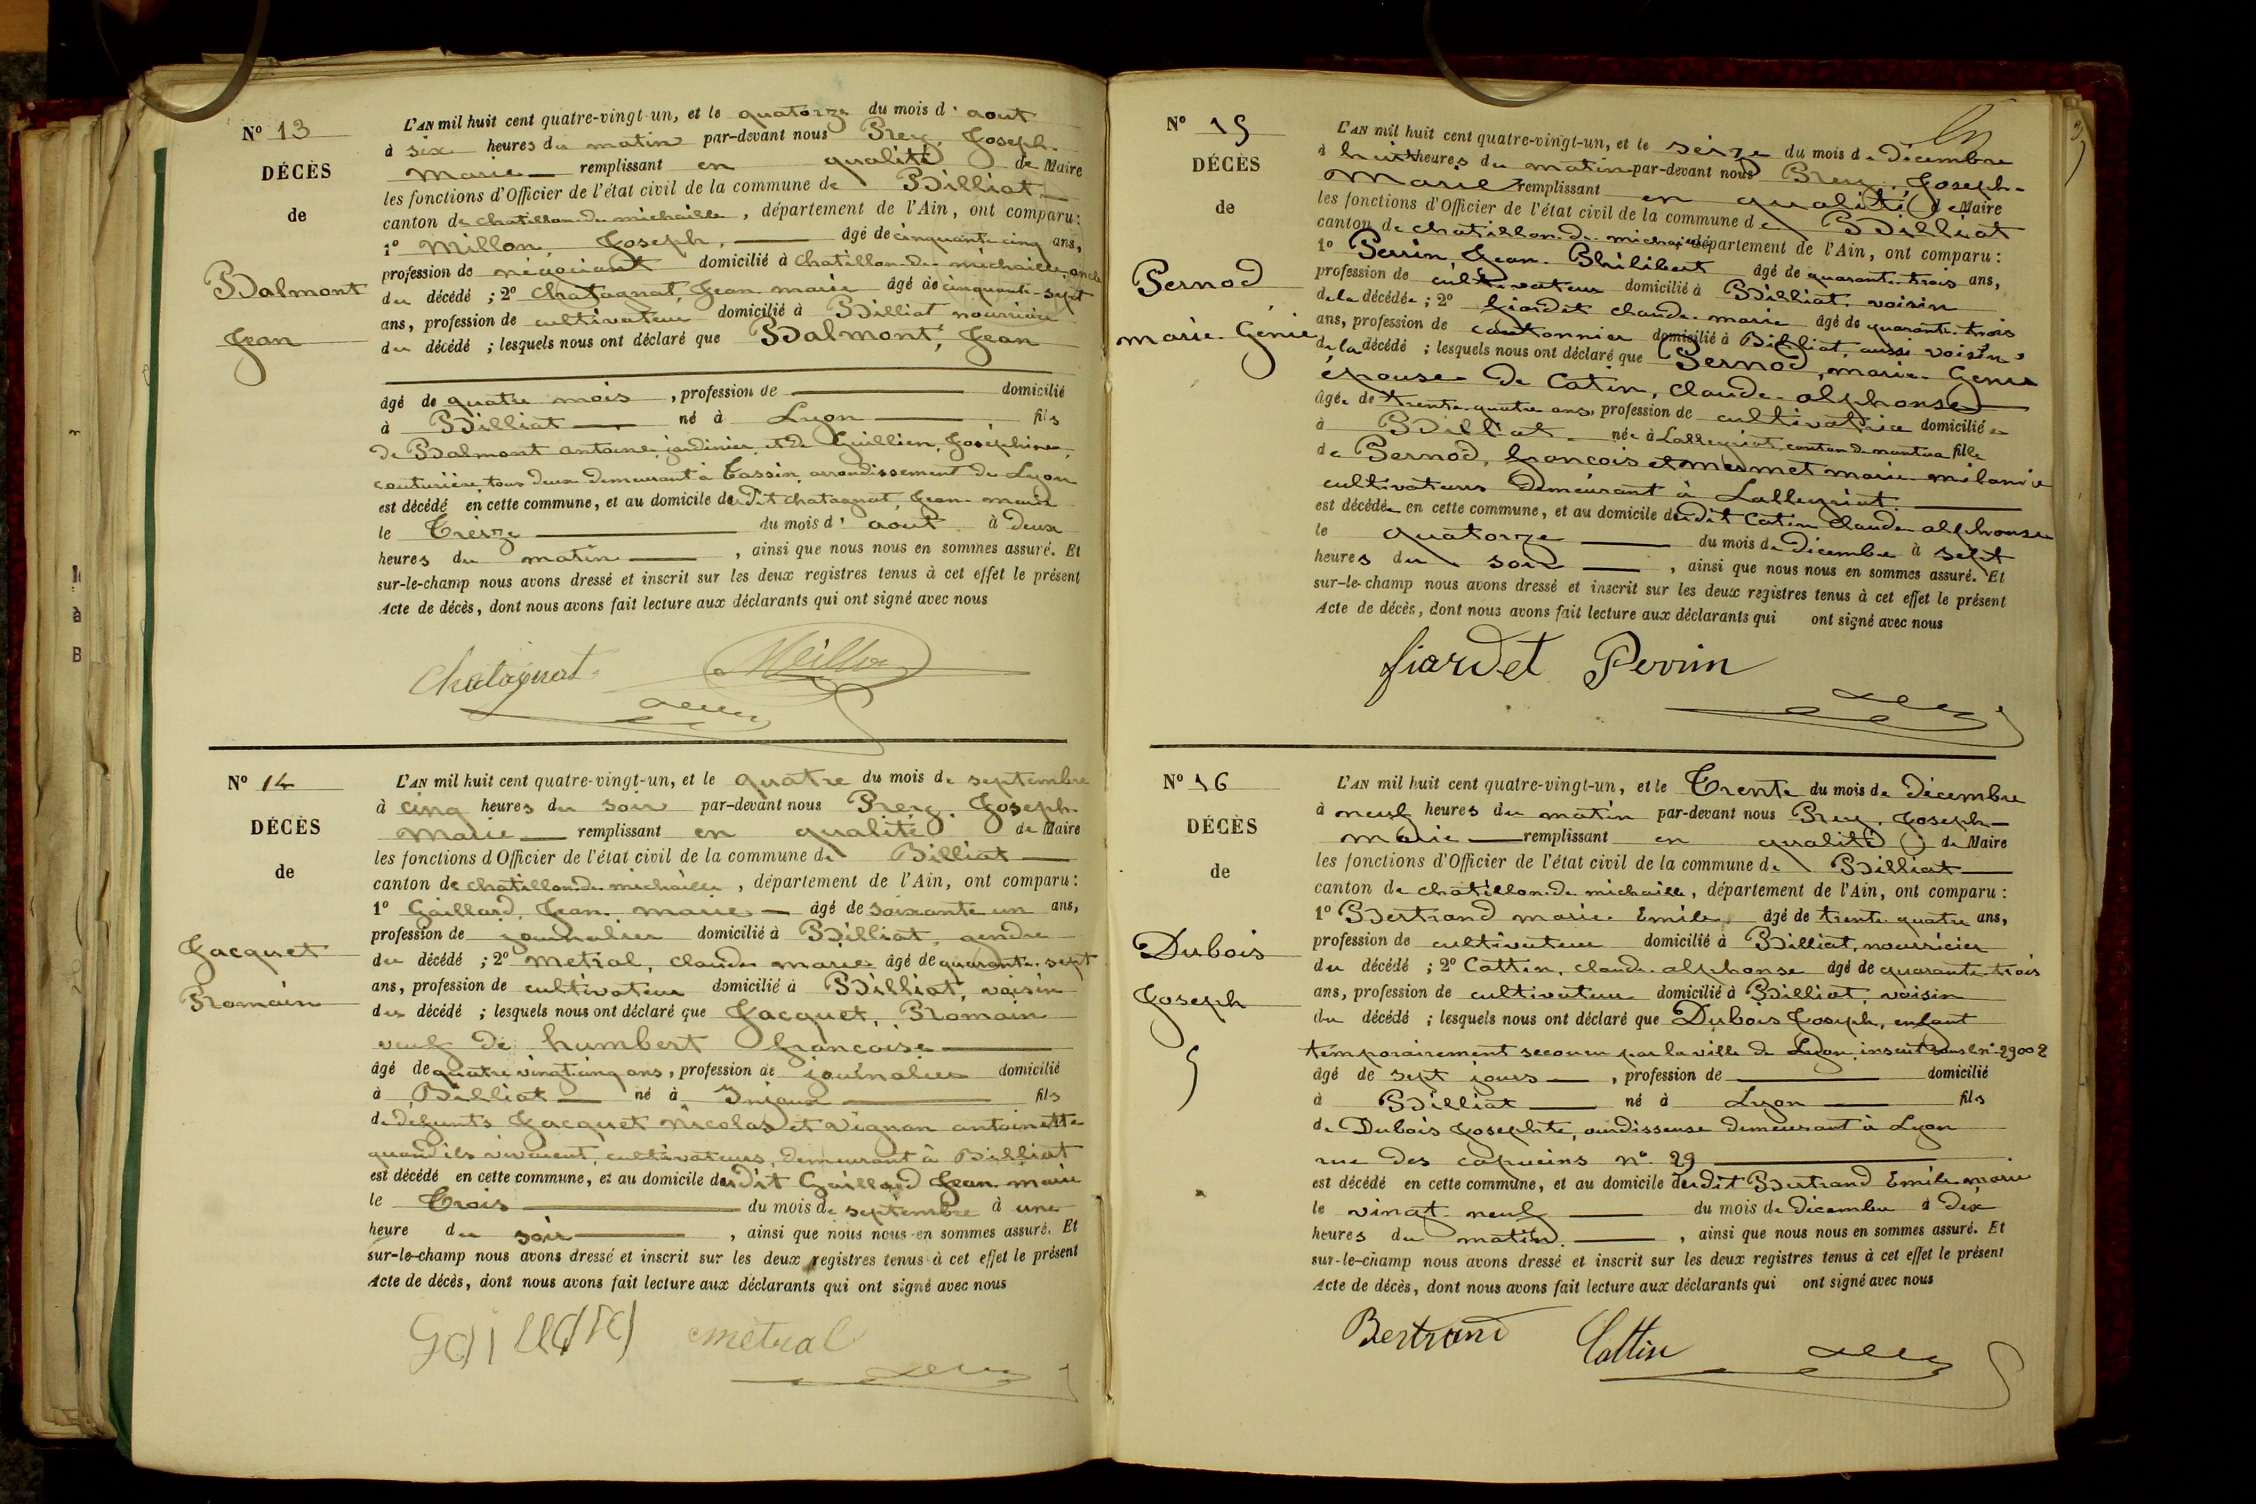 N° 13
DÉCÈS
de
Balmont
Jean
L'AN mil huit cent quatre-vingt-un, et le quatorze du mois d' aout
à six heures du matin par-devant nous Prey, Joseph-
Marie remplissant en qualité de Maire
les fonctions d'Officier de l'état civil de la commune de Billiat
canton de chatillon-de-michaille, département de l'Ain, ont comparu :
1° Millon, Joseph, âgé de cinquante cinq ans,
profession de négociant domicilié à chatillon-de-michaille, oncle
du décédé ; 2° Chatagnat, Jean marie âgé de cinquante-sept
ans, profession de cultivateur domicilié à Billiat nourricier
du décédé ; lesquels nous ont déclaré que Balmont, Jean
âgé de quatre mois, profession de domicilié
à Billiat né à Lyon fils
de Balmont antoine, jardinier et de Guillien, Joséphine,
couturière, tous deux demeurant à Tassin, arrondissement de Lyon
est décédé en cette commune, et au domicile du dit chatagnat, Jean-marie
le Treize du mois d' aout à deux
heures du matin, ainsi que nous nous en sommes assuré. Et
sur-le-champ nous avons dressé et inscrit sur les deux registres tenus à cet effet le présent
Acte de décès, dont nous avons fait lecture aux déclarants qui ont signé avec nous
Chatagnat Millon
N° 14
DÉCÈS
de
Jacquet
Romain
L'AN mil huit cent quatre-vingt-un, et le quatre du mois de septembre
à cinq heures du soir par-devant nous Prey, Joseph
Marie remplissant en qualité de Maire
les fonctions d'Officier de l'état civil de la commune de Billiat
canton de chatillon-de-michaille, département de l'Ain, ont comparu :
1° Gaillard, Jean marie âgé de soixante un ans,
profession de journalier domicilié à Billiat, gendre
du décédé ; 2° Metral, claude marie âgé de quarante-sept
ans, profession de cultivateur domicilié à Billiat, voisin
du décédé ; lesquels nous ont déclaré que Jacquet, Romain
veuf de humbert françoise
âgé de quatre vingt cinq ans, profession de journalier domicilié
à Billiat né à Injoux fils
de defunts Jacquet Nicolas et Vignon antoinette
quand ils vivaient, cultivateurs, demeurant à Billiat
est décédé en cette commune, et au domicile du dit Gaillard Jean marie
le Trois du mois de septembre à une
heure du soir, ainsi que nous nous en sommes assuré. Et
sur-le-champ nous avons dressé et inscrit sur les deux registres tenus à cet effet le présent
Acte de décès, dont nous avons fait lecture aux déclarants qui ont signé avec nous
Gaillard metral
N° 15
DÉCÈS
de
Pernod
marie Génie
L'AN mil huit cent quatre-vingt-un, et le seize du mois de Décembre
à huit heures du matin par-devant nous Prey, Joseph-
Marie remplissant en qualité de Maire
les fonctions d'Officier de l'état civil de la commune de Billiat
canton de chatillon-de-michaille département de l'Ain, ont comparu :
1° Perrin, Jean-Philibert âgé de quarante-trois ans,
profession de cultivateur domicilié à Billiat, voisin
de la décédée ; 2° fiardet claude-marie âgé de quarante-trois
ans, profession de cantonnier domicilié à Billiat, aussi voisin
de la décédé ; lesquels nous ont déclaré que Pernod, marie-Génie
épouse de Catin, claude-alphonse
âgée de trente-quatre ans, profession de cultivatrice domiciliée
à Billiat née à Lalleyriat canton de nantua fille
de Pernod, françois et mermet marie-mélanie
cultivateurs demeurant à Lalleyriat.
est décédée en cette commune, et au domicile du dit Catin claude alphonse
le quatorze du mois de Décembre à sept
heures du soir, ainsi que nous nous en sommes assuré. Et
sur-le-champ nous avons dressé et inscrit sur les deux registres tenus à cet effet le présent
Acte de décès, dont nous avons fait lecture aux déclarants qui ont signé avec nous
fiardet Perrin
N° 16
DÉCÈS
de
Dubois
Joseph
L'AN mil huit cent quatre-vingt-un, et le Trente du mois de Décembre
à neuf heures du matin par-devant nous Prey, Joseph-
Marie remplissant en qualité de Maire
les fonctions d'Officier de l'état civil de la commune de Billiat
canton de chatillon-de-michaille, département de l'Ain, ont comparu :
1° Bertrand marie-Emile âgé de trente quatre ans,
profession de cultivateur domicilié à Billiat, nourricier
du décédé ; 2° Cattin, claude-alphonse âgé de quarante-trois
ans, profession de cultivateur domicilié à Billiat, voisin
du décédé ; lesquels nous ont déclaré que Dubois Joseph, enfant
temporairement secouru par la ville de Lyon, inscrit sous le n° 29002
âgé de sept jours, profession de domicilié
à Billiat né à Lyon fils
de Dubois Josephte, ourdisseuse demeurant à Lyon
rue des capucins n° 29
est décédé en cette commune, et au domicile du dit Bertrand Emile-marie
le vingt-neuf du mois de Décembre à Dix
heures du matin, ainsi que nous nous en sommes assuré. Et
sur-le-champ nous avons dressé et inscrit sur les deux registres tenus à cet effet le présent
Acte de décès, dont nous avons fait lecture aux déclarants qui ont signé avec nous
Bertrand Cattin